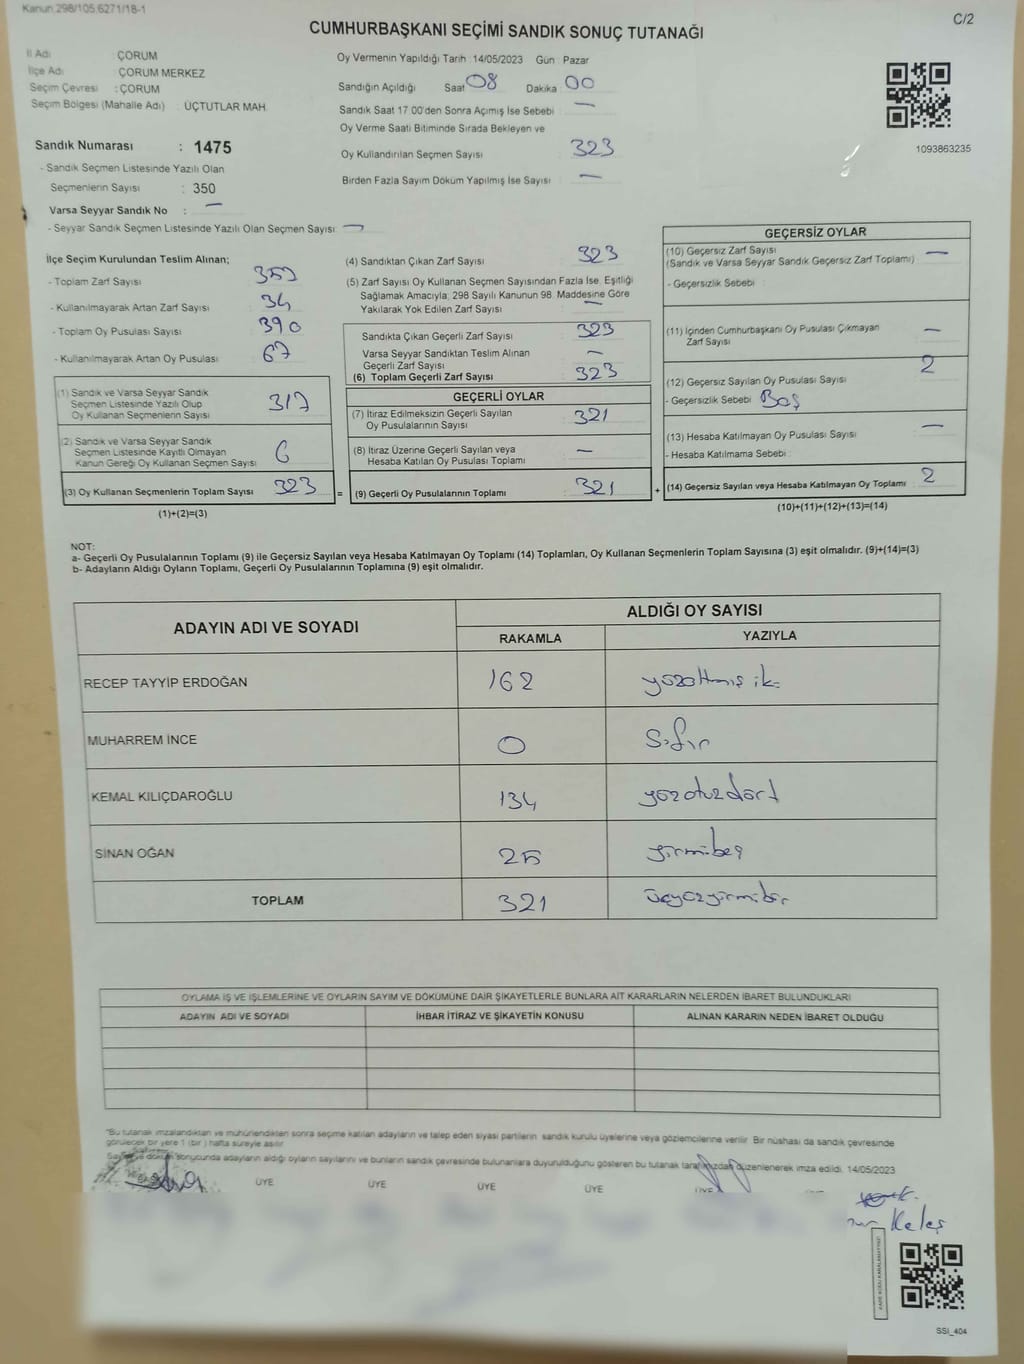 Kanun 298/105 6271/18-1
C/2
CUMHURBAŞKANI SEÇİMİ SANDIK SONUÇ TUTANAĞI
İl Adı : ÇORUM
İlçe Adı : ÇORUM MERKEZ
Seçim Çevresi : ÇORUM
Seçim Bölgesi (Mahalle Adı) : ÜÇTUTLAR MAH.
Sandık Numarası : 1475
- Sandık Seçmen Listesinde Yazılı Olan
Seçmenlerin Sayısı : 350
Varsa Seyyar Sandık No : —
- Seyyar Sandık Seçmen Listesinde Yazılı Olan Seçmen Sayısı: —
Oy Vermenin Yapıldığı Tarih 14/05/2023 Gün : Pazar
Sandığın Açıldığı Saat 08 Dakika 00
Sandık Saat 17.00'den Sonra Açımış İse Sebebi : —
Oy Verme Saati Bitiminde Sırada Bekleyen ve
Oy Kullandırılan Seçmen Sayısı : 323
Birden Fazla Sayım Döküm Yapılmış İse Sayısı : —
1093863235
İlçe Seçim Kurulundan Teslim Alınan;
- Toplam Zarf Sayısı
- Kullanılmayarak Artan Zarf Sayısı : 34
- Toplam Oy Pusulası Sayısı : 390
- Kullanılmayarak Artan Oy Pusulası : 67
(1) Sandık ve Varsa Seyyar Sandık
Seçmen Listesinde Yazılı Olup
Oy Kullanan Seçmenlerin Sayısı 317
(2) Sandık ve Varsa Seyyar Sandık
Seçmen Listesinde Kayıtlı Olmayan
Kanun Gereği Oy Kullanan Seçmen Sayısı 6
(3) Oy Kullanan Seçmenlerin Toplam Sayısı 323
(1)+(2)=(3)
(4) Sandıktan Çıkan Zarf Sayısı : 323
(5) Zarf Sayısı Oy Kullanan Seçmen Sayısından Fazla İse, Eşitliği
Sağlamak Amacıyla; 298 Sayılı Kanunun 98. Maddesine Göre
Yakılarak Yok Edilen Zarf Sayısı : —
Sandıkta Çıkan Geçerli Zarf Sayısı : 323
Varsa Seyyar Sandıktan Teslim Alınan
Geçerli Zarf Sayısı : —
(6) Toplam Geçerli Zarf Sayısı : 323
GEÇERLİ OYLAR
(7) İtiraz Edilmeksizin Geçerli Sayılan
Oy Pusulalarının Sayısı : 321
(8) İtiraz Üzerine Geçerli Sayılan veya
Hesaba Katılan Oy Pusulası Toplamı : —
= (9) Geçerli Oy Pusulalarının Toplamı : 321
GEÇERSİZ OYLAR
(10) Geçersiz Zarf Sayısı : —
(Sandık ve Varsa Seyyar Sandık Geçersiz Zarf Toplamı)
- Geçersizlik Sebebi :
(11) İçinden Cumhurbaşkanı Oy Pusulası Çıkmayan
Zarf Sayısı : —
(12) Geçersiz Sayılan Oy Pusulası Sayısı : 2
- Geçersizlik Sebebi : Boş
(13) Hesaba Katılmayan Oy Pusulası Sayısı : —
- Hesaba Katılmama Sebebi :
+ (14) Geçersiz Sayılan veya Hesaba Katılmayan Oy Toplamı : 2
(10)+(11)+(12)+(13)=(14)
NOT:
a- Geçerli Oy Pusulalarının Toplamı (9) ile Geçersiz Sayılan veya Hesaba Katılmayan Oy Toplamı (14) Toplamları, Oy Kullanan Seçmenlerin Toplam Sayısına (3) eşit olmalıdır. (9)+(14)=(3)
b- Adayların Aldığı Oyların Toplamı, Geçerli Oy Pusulalarının Toplamına (9) eşit olmalıdır.
ADAYIN ADI VE SOYADI
ALDIĞI OY SAYISI
RAKAMLA YAZIYLA
RECEP TAYYİP ERDOĞAN 162 yüzaltmış iki
MUHARREM İNCE 0 Sıfır
KEMAL KILIÇDAROĞLU 134 yüzotuzdört
SİNAN OĞAN 25 yirmibeş
TOPLAM 321 üçyüzyirmibir
OYLAMA İŞ VE İŞLEMLERİNE VE OYLARIN SAYIM VE DÖKÜMÜNE DAİR ŞİKAYETLERLE BUNLARA AİT KARARLARIN NELERDEN İBARET BULUNDUKLARI
ADAYIN ADI VE SOYADI İHBAR İTİRAZ VE ŞİKAYETİN KONUSU ALINAN KARARIN NEDEN İBARET OLDUĞU
*Bu tutanak imzalandıktan ve mühürlendikten sonra seçime katılan adayların ve talep eden siyasi partilerin sandık kurulu üyelerine veya gözlemcilerine verilir. Bir nüshası da sandık çevresinde
görülecek bir yere 1 (bir) hafta süreyle asılır.
Sayım ve döküm sonucunda adayların aldığı oyların sayılarını ve bunların sandık çevresinde bulunanlara duyurulduğunu gösteren bu tutanak tarafımızdan düzenlenerek imza edildi. 14/05/2023
ÜYE ÜYE ÜYE ÜYE ÜYE
Keleş
SSİ_404